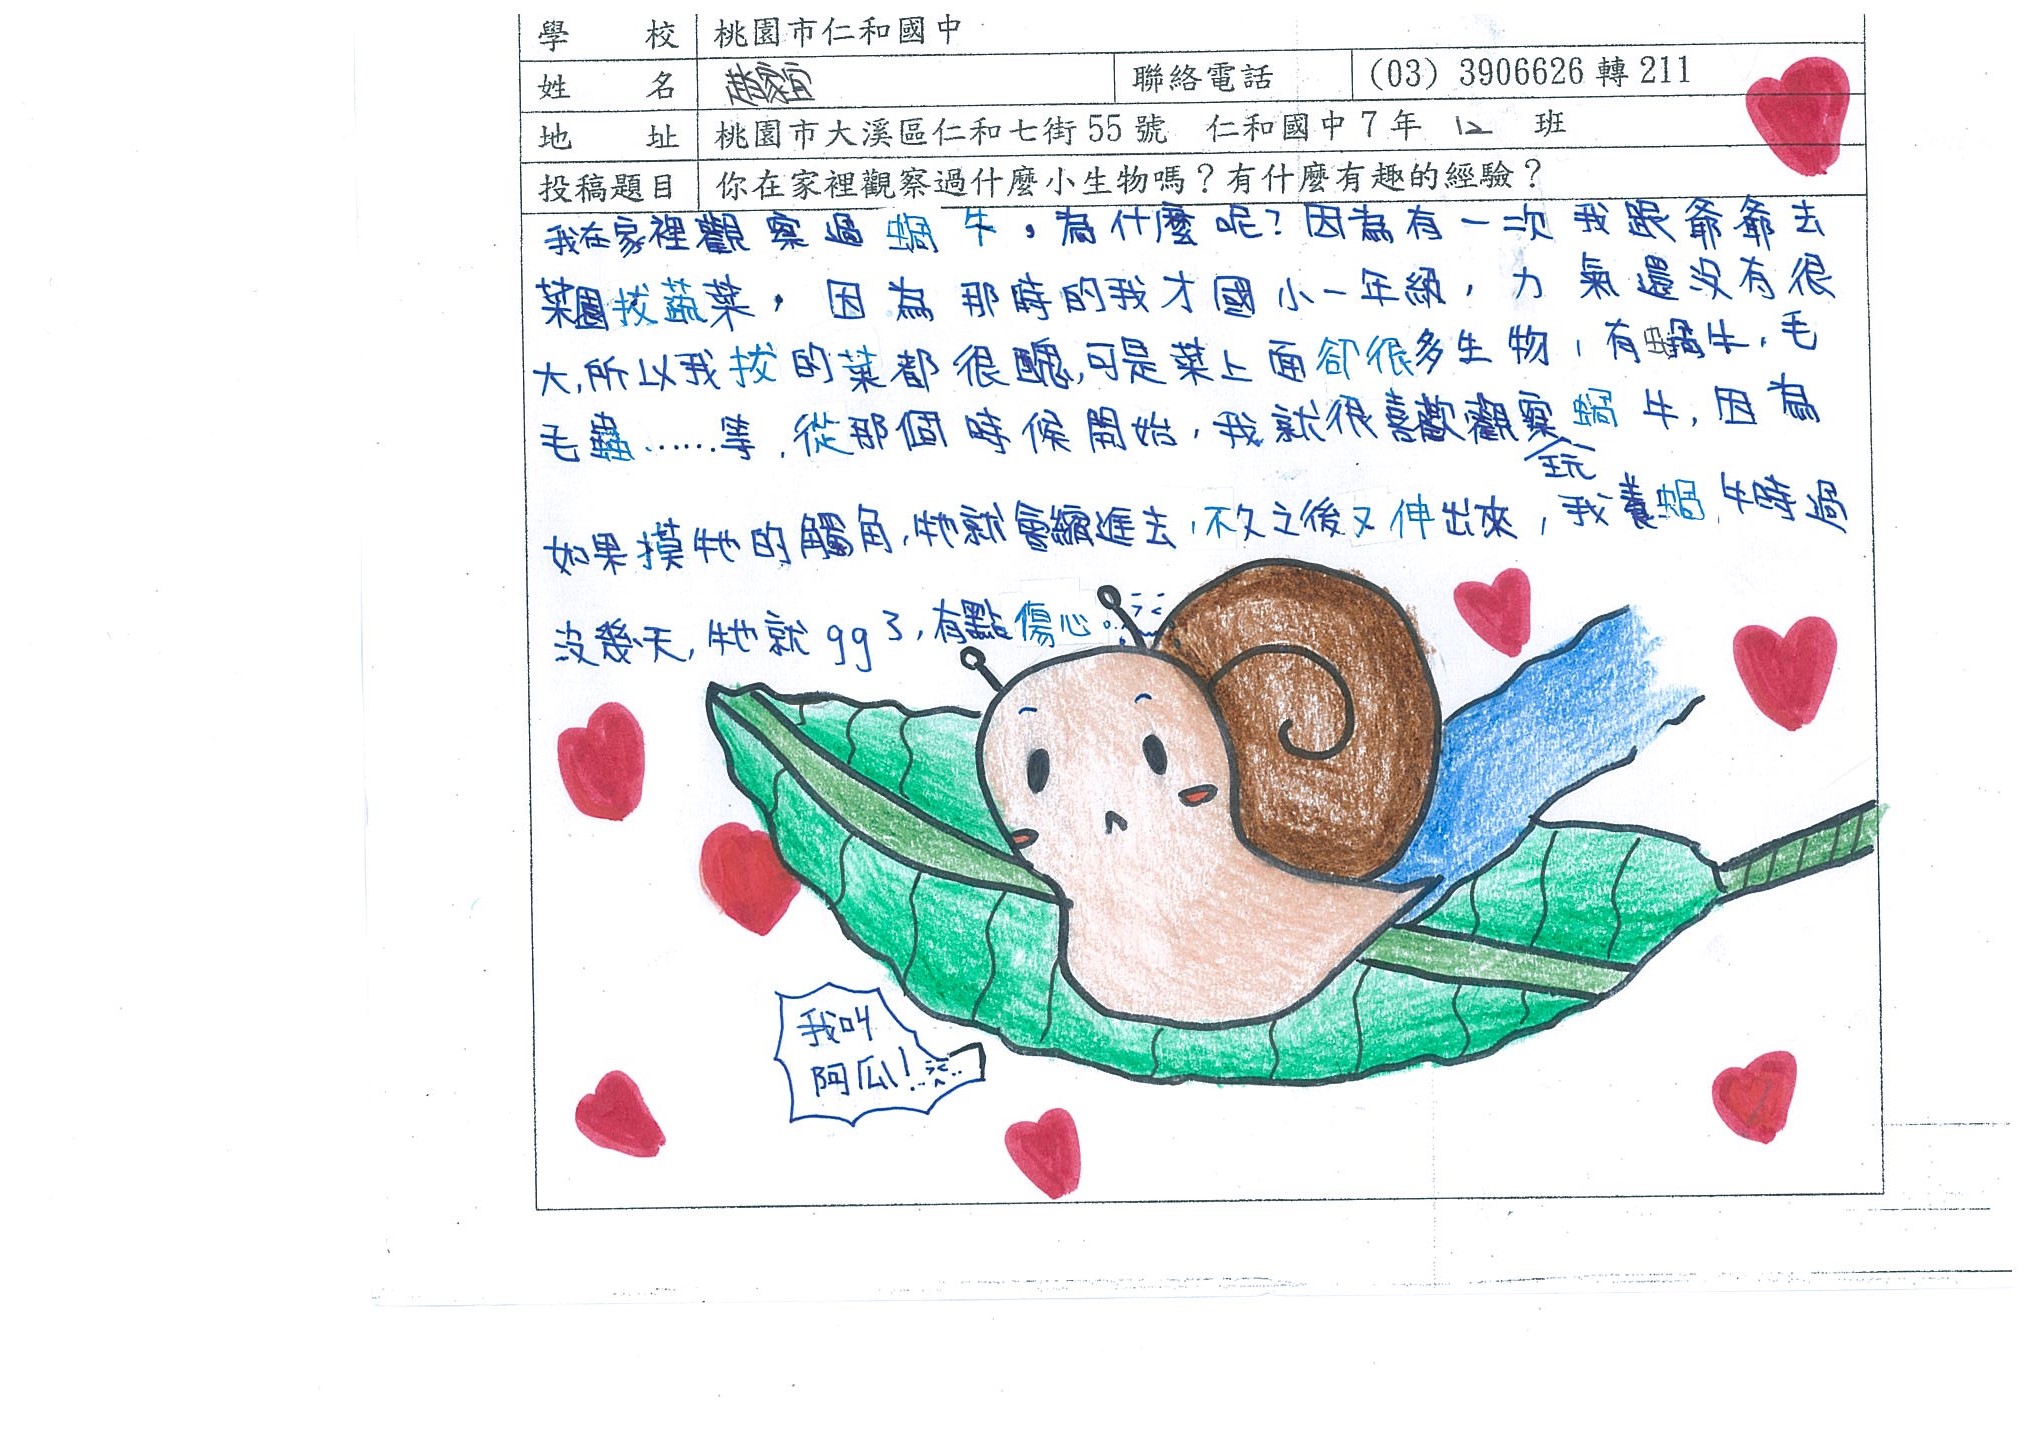 學校 桃園市仁和國中
姓名 趙家宜 聯絡電話 (03) 3906626 轉 211
地址 桃園市大溪區仁和七街 55 號 仁和國中 7 年 12 班
投稿題目 你在家裡觀察過什麼小生物嗎？有什麼有趣的經驗？
我在家裡觀察過蝸牛，為什麼呢？因為有一次我跟爺爺去
菜園拔蔬菜，因為那時的我才國小一年級，力氣還沒有很
大，所以我拔的菜都很醜，可是菜上面卻很多生物，有蝸牛，毛
毛蟲……等，從那個時候開始，我就很喜歡觀察玩蝸牛，因為
如果摸牠的觸角，牠就會縮進去，不久之後又伸出來，我養蝸牛時過
沒幾天，牠就gg了，有點傷心
我叫
阿瓜！